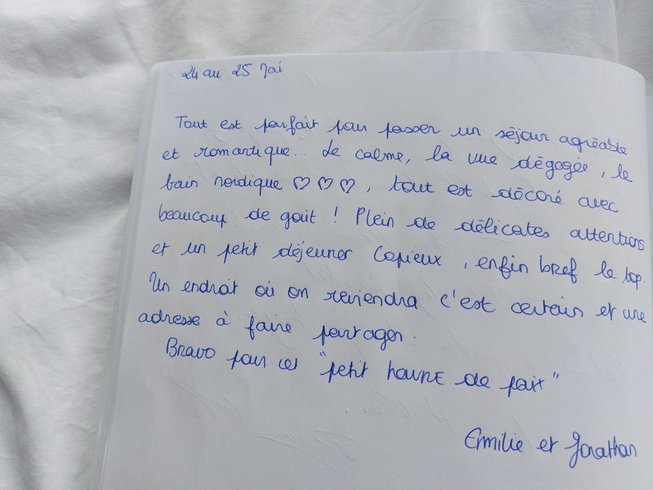 24 au 25 Mai
Tout est parfait pour passer un séjour agréable
et romantique... Le calme, la vue dégagée, le
bain nordique ♡♡♡, tout est décoré avec
beaucoup de goût ! Plein de délicates attentions
et un petit déjeuner copieux, enfin bref le top.
Un endroit où on reviendra c'est certain et une
adresse à faire partager.
Bravo pour ce "petit havre de paix"
Emilie et Jonathan